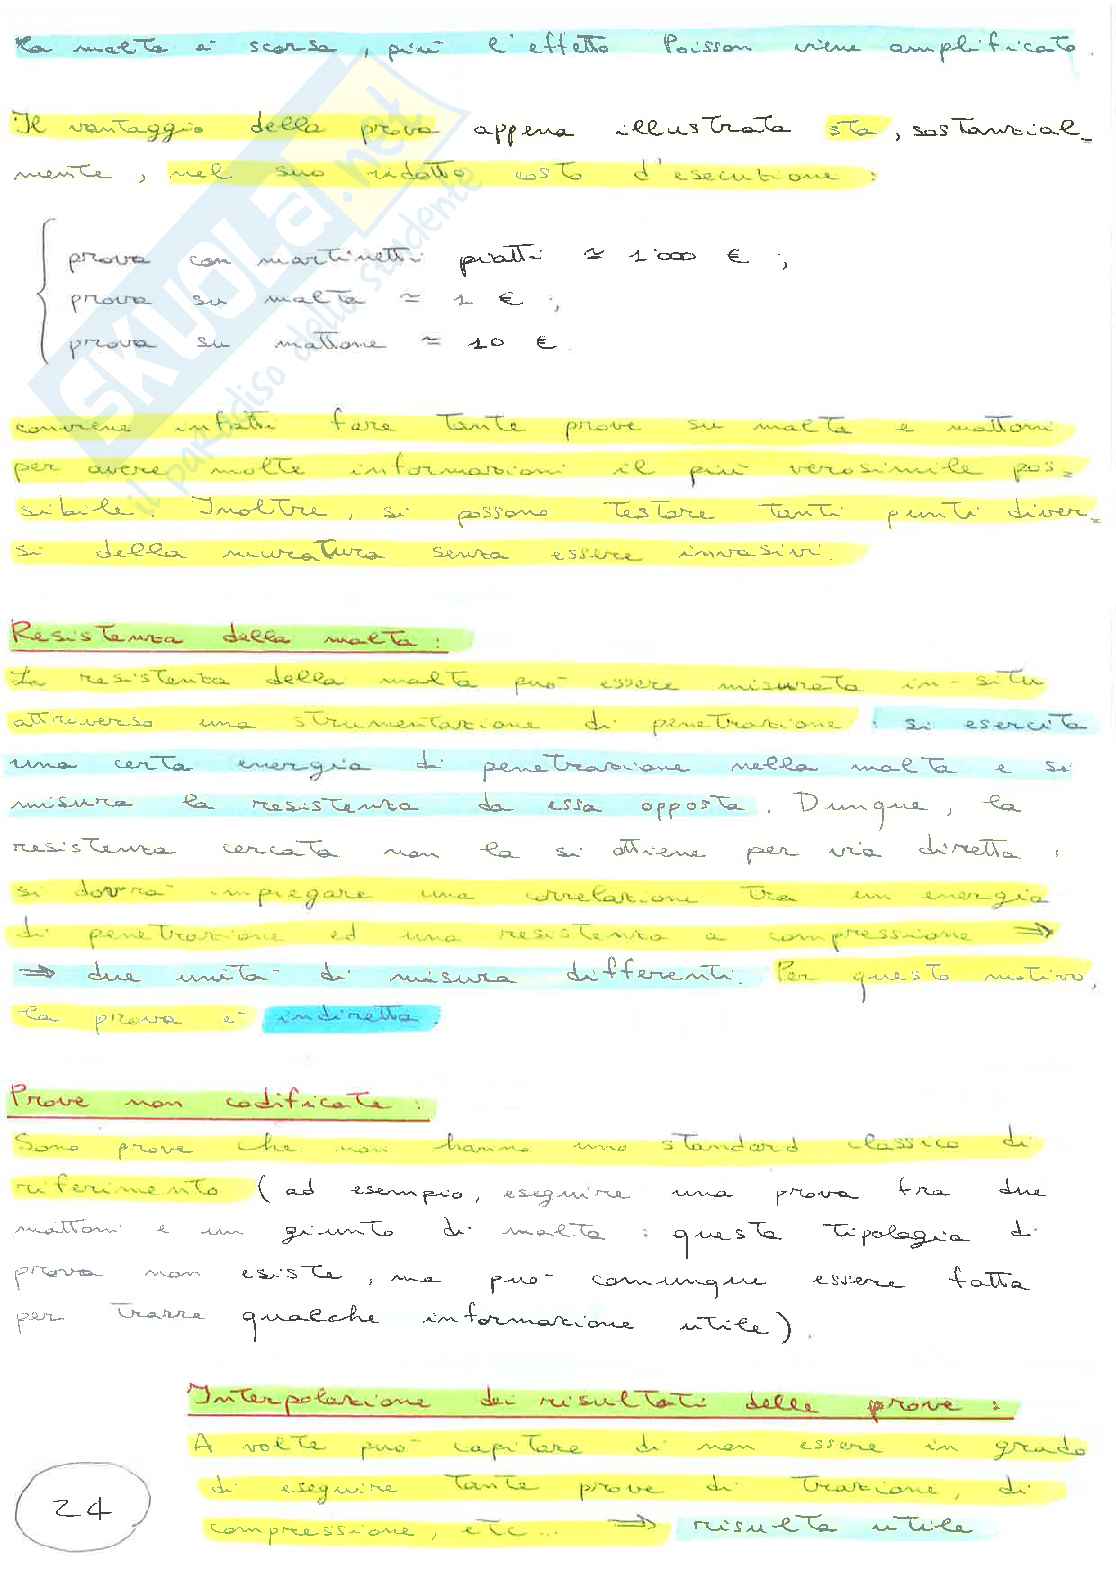 la malta è scarsa, più l'effetto Poisson viene amplificato.
Il vantaggio della prova appena illustrata sta, sostanzial-
mente, nel suo ridotto costo d'esecuzione:
prova con martinetti piatti ≃ 1'000 € ;
prova su malta ≃ 1 € ;
prova su mattone ≃ 10 €.
conviene infatti fare tante prove su malta e mattoni
per avere molte informazioni il più verosimile pos-
sibile. Inoltre, si possono testare tanti punti diver-
si della muratura senza essere invasivi.
Resistenza della malta:
La resistenza della malta può essere misurata in-situ
attraverso una strumentazione di penetrazione: si esercita
una certa energia di penetrazione nella malta e si
misura la resistenza da essa opposta. Dunque, la
resistenza cercata non la si ottiene per via diretta:
si dovrà impiegare una correlazione tra un energia
di penetrazione ed una resistenza a compressione ⇒
⇒ due unità di misura differenti. Per questo motivo,
la prova è indiretta.
Prove non codificate:
Sono prove che non hanno uno standard classico di
riferimento (ad esempio, eseguire una prova fra due
mattoni e un giunto di malta: questa tipologia di
prova non esiste, ma può comunque essere fatta
per trarre qualche informazione utile).
Interpolazione dei risultati delle prove:
A volte può capitare di non essere in grado
di eseguire tante prove di trazione, di
compressione, etc... ⇒ risulta utile
24
SKUOLA.net
il paradiso dello studente